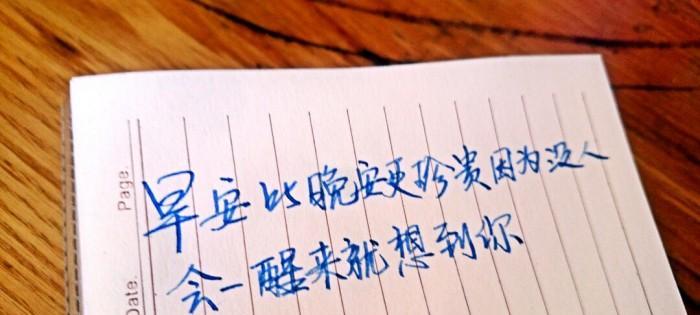 早安比晚安更珍贵因为没人
会一醒来就想到你
Page.
Date.